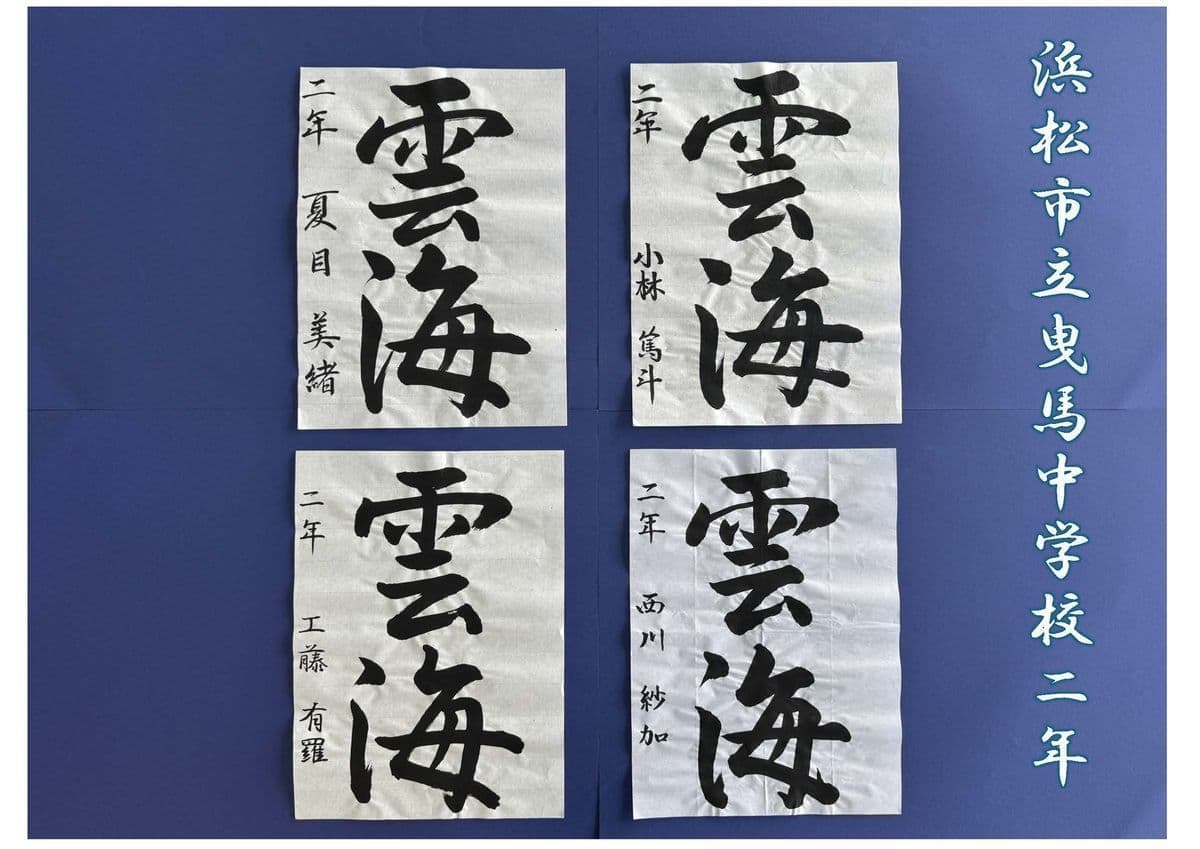 浜松市立曳馬中学校二年
雲海
二年 小林 篤斗
雲海
二年 夏目 美緒
雲海
二年 西川 紗加
雲海
二年 工藤 有羅